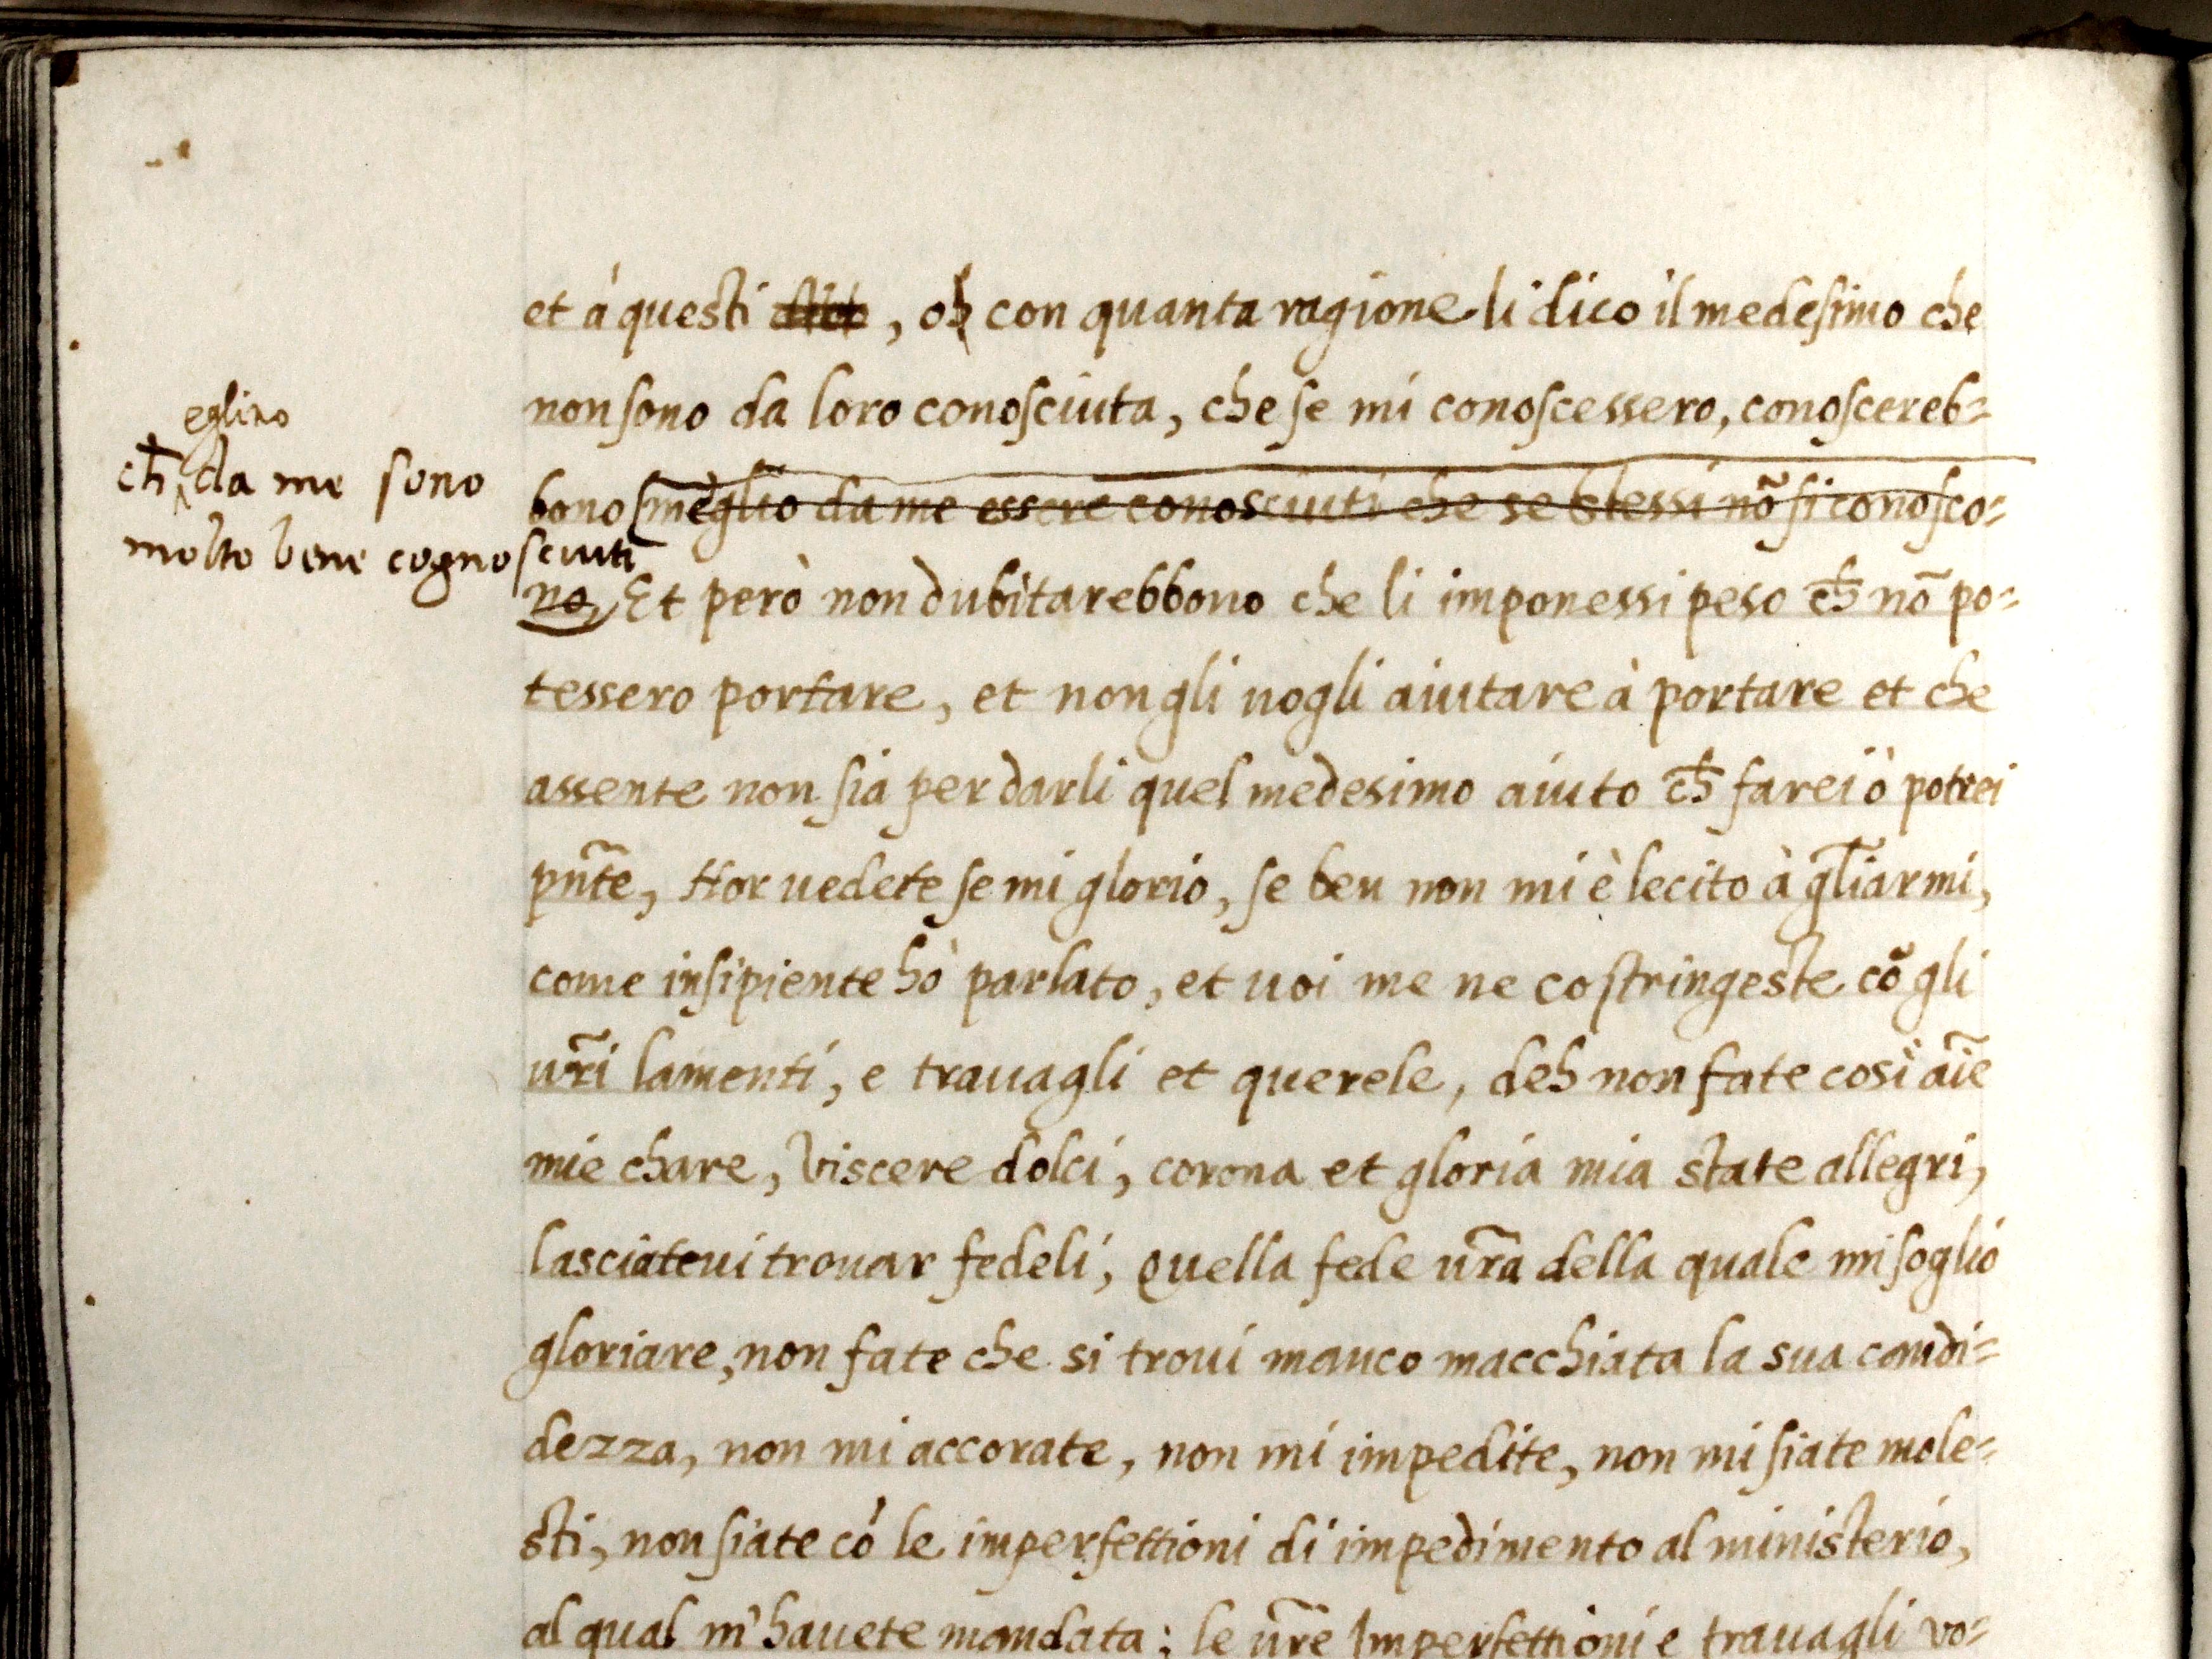 et à questi , oh con quanta ragione li dico il medesimo che
non sono da loro conosciuta, che se mi conoscessero, conoscereb=
eglino
ch̃ da me sono
molto bene cognosciuti
bono meglio da me essere conosciuti che se stessi nõ si conosco=
no, Et però non dubitarebbono che li imponessi peso ch̃ nõ po=
tessero portare, et non gli uogli aiutare à portare et che
assente non sia per darli quel medesimo aiuto ch̃ farei ò potrei
pñte, Hor uedete se mi glorio, se ben non mi è lecito à gl̃iarmi,
come insipiente hò parlato, et uoi me ne costringeste cõ gli
ur̃i lamenti, e trauagli et querele, deh non fate cosi aĩe
mie chare, viscere dolci, corona et gloria mia state allegri,
lasciateui trouar fedeli, Quella fede ur̃a della quale mi soglio
gloriare, non fate che si troui manco macchiata la sua candi=
dezza, non mi accorate, non mi impedite, non mi siate mole=
sti, non siate có le imperfettioni di impedimento al ministerio,
al qual m'hauete mandata: le ur̃e Imperfettioni e trauagli vo=